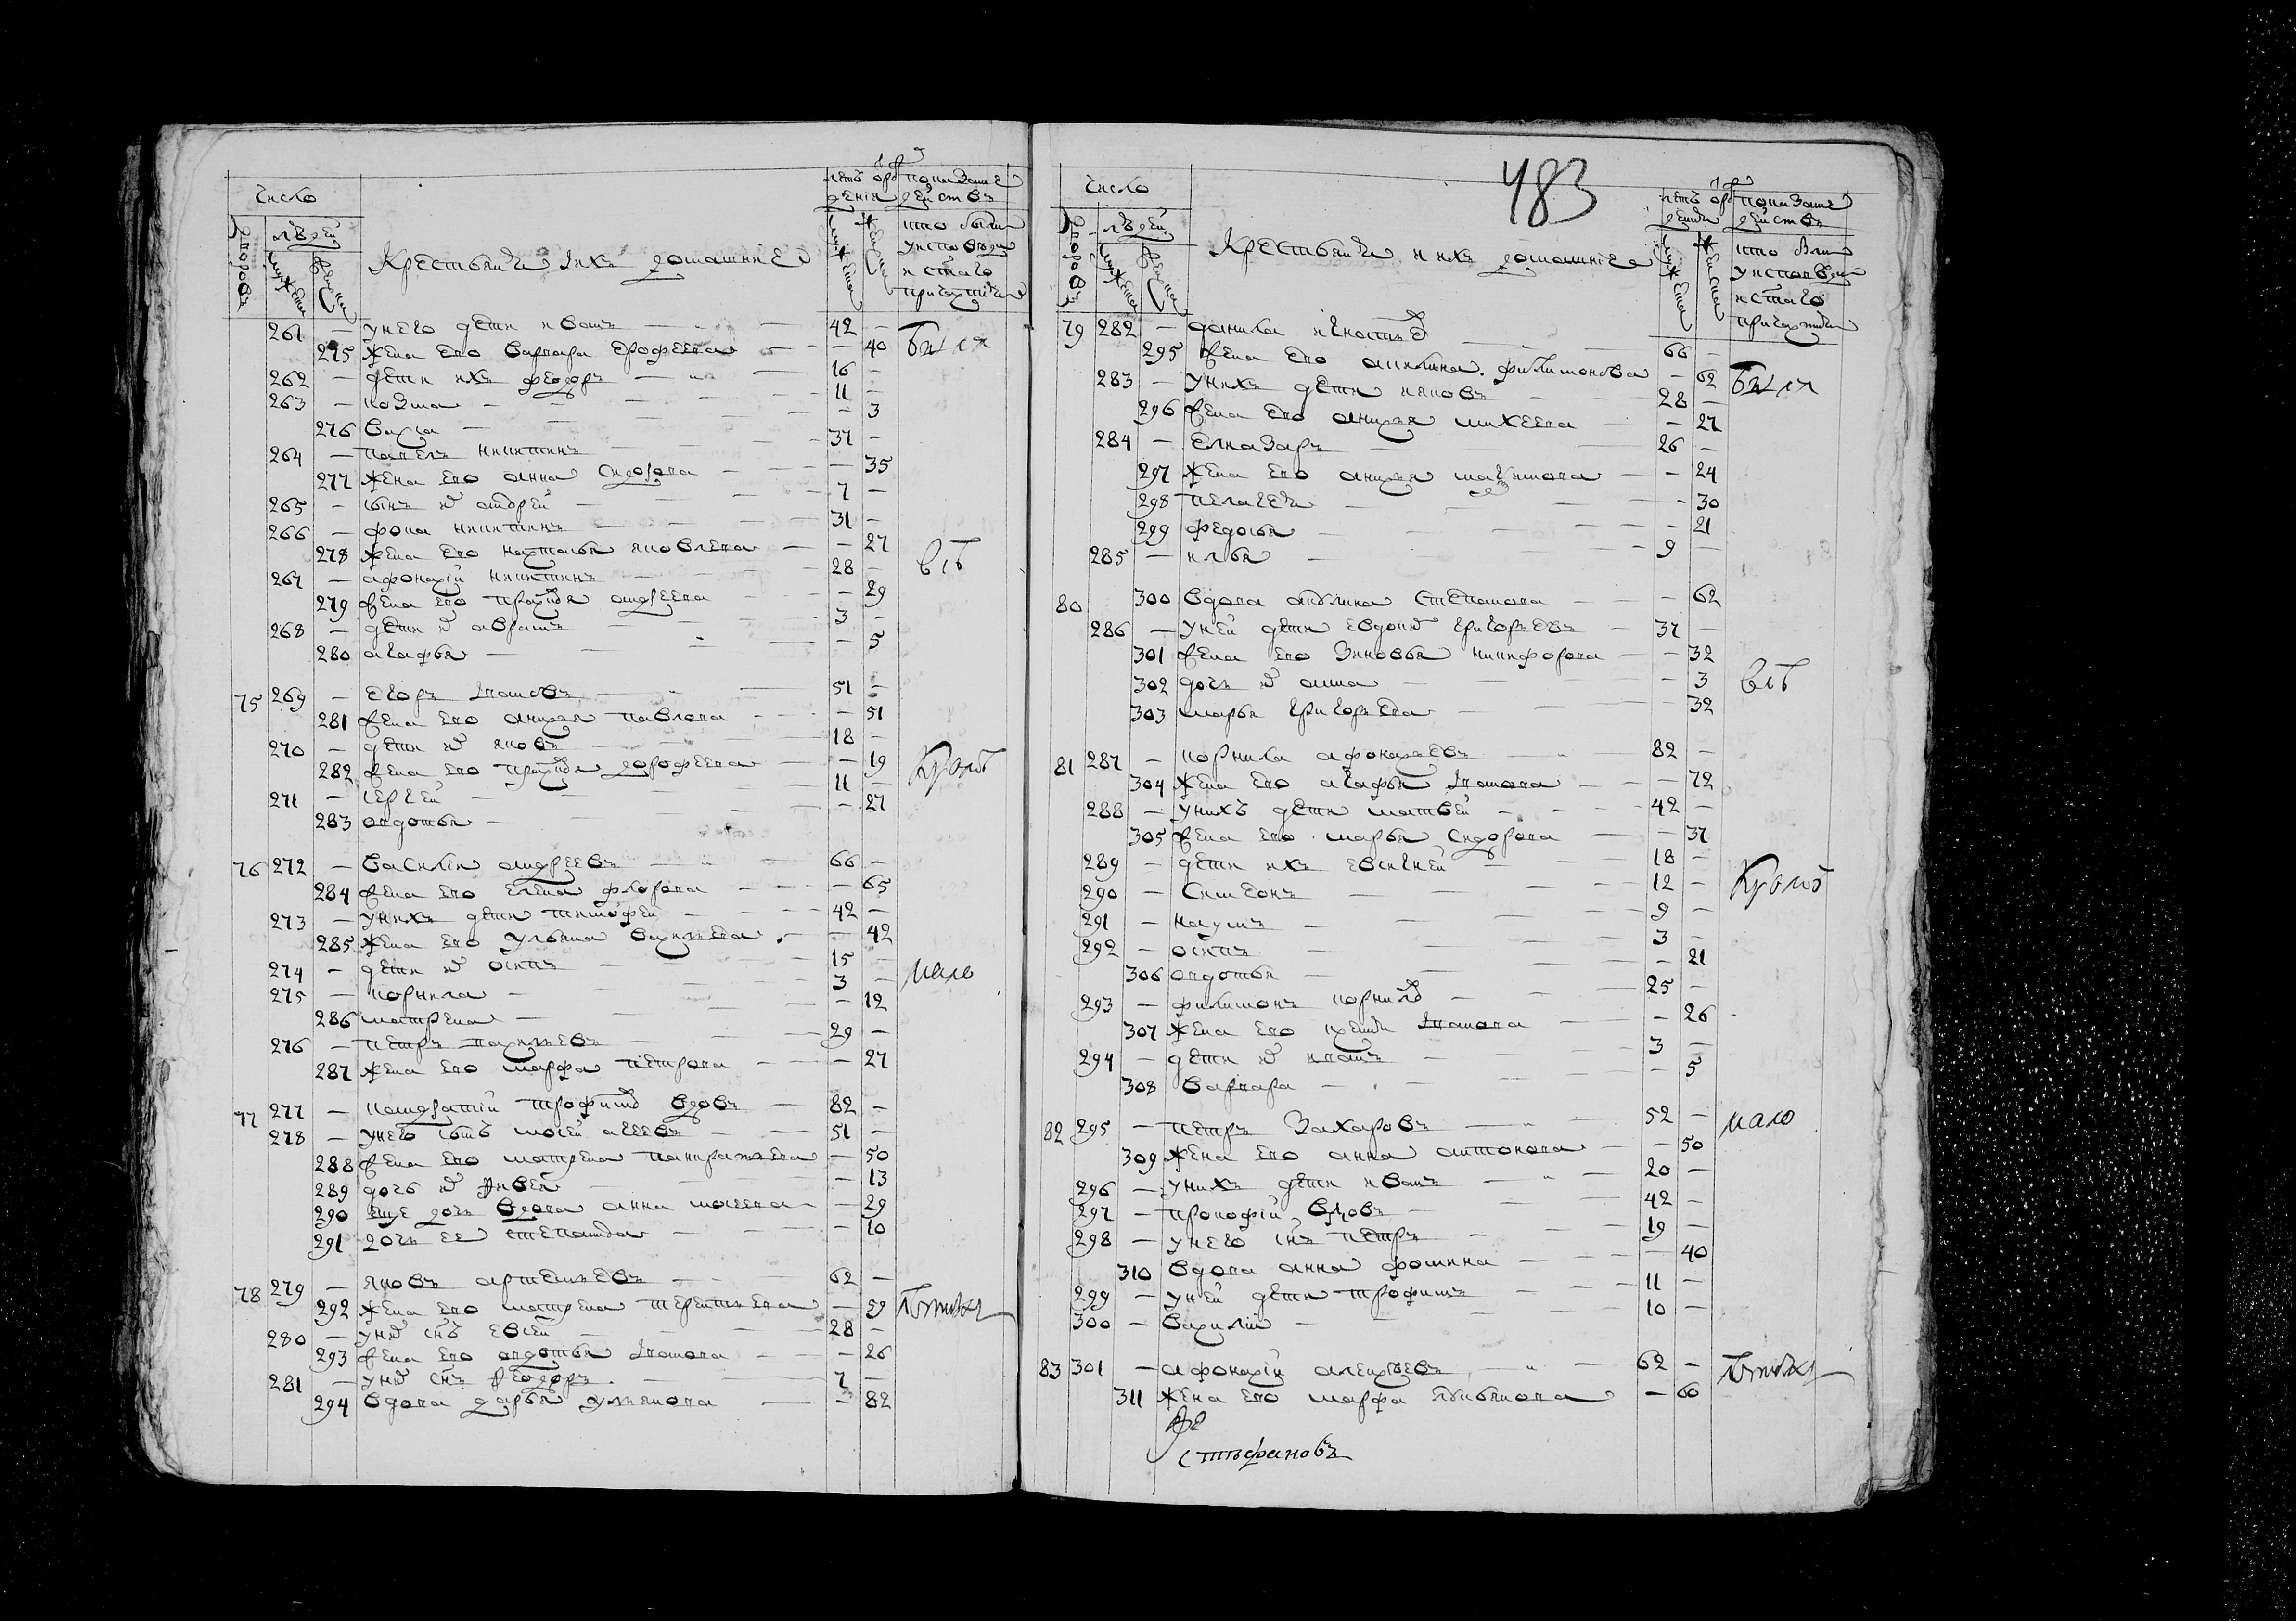 число
людей
дворовъ
мужеска
женска
Крестьяня и ихъ домашние
летъ от рождения
мужеска
женска
показание действъ
кто были
у исповеди
и с͠таго
причастия
261 — у него дети иванъ — 42 —
275 жена его варвара ерофеева — 40 были
262 — дети ихъ федоръ — 16 —
263 — козма — 11 —
276 васса — 3
264 — павелъ никитинъ — 37 —
277 жена его анна сидорова — 35
265 — сынъ их андрей — 7 —
266 — фока никитинъ — 31 —
278 жена его наталья яковлева — 27
267 — афонасий никитинъ — 28 — въ
279 жена его андреева — 29
268 — дети их авраамъ — 3 —
280 агафья — 5
75 269 — егоръ ивановъ — 51 —
281 жена его анисья павлова — 51
270 — дети их яковъ — 18 —
282 жена его дорофеева — 19
271 — сергей — 11 —
283 авдотья — 27
76 272 — василий андреевъ — 66 —
284 жена его елена флорова — 65
273 — у нихъ дети тимофей — 42 —
285 жена его ульяна васильева — 42
274 — дети их осипъ — 15 —
275 — корнила — 3 — мало
286 матрена — 12
276 — петръ васильевъ — 29 —
287 жена его марфа петрова — 27
77 277 — трофимов вдовъ — 82 —
278 — у него моисей агеевъ — 51 —
288 жена его матрена панкратьева — 50
289 дочь их — 13
290 еще дочь вдова анна моисеева — 29
291 дочь ее степанида — 10
78 279 — яковъ артемьевъ — 62 —
292 жена его матрена терентьева — 59
280 — у них снъ евсей — 28 —
293 жена его авдотья иванова — 26
281 — у них снъ федоръ — 7 —
294 вдова дарья — 82
483
число
людей
дворовъ
мужеска
женска
Крестьяня и ихъ домашние
летъ от рождения
мужеска
женска
показание действъ
кто были
у исповеди
и с͠таго
причастия
79 282 — данила игнатьев — 66 —
295 жена его акилина филимонова — 62 были
283 — у нихъ дети яковъ — 28 —
296 жена его анисья михеева — 27
284 — елиазаръ — 26 —
297 жена его анисья максимова — 24
298 пелагея — 30
299 федосья — 21
285 — илья — 9 —
80 300 вдова акилина степанова — 62
286 — у ней дети евдоким григорьевъ — 37 —
301 жена его зиновья никифорова — 32
302 дочь их анна — 3 въ
303 марья григорьева — 32
81 287 — корнила афонасьевъ — 82 —
304 жена его агафья иванова — 72
288 — у нихъ дети матвей — 42 —
305 жена его марья сидорова — 37
289 — дети ихъ евсигней — 18 —
290 — симеонъ — 12 —
291 — наумъ — 9 —
292 — осипъ — 3 —
306 авдотья — 21
293 — филимонъ корнилов — 25 —
307 жена его иванова — 26
294 — дети их иванъ — 3 —
308 варвара — 5
82 295 — петръ захаровъ — 52 — мало
309 жена его анна антонова — 50
296 — у нихъ дети иванъ — 20 —
297 — прокофий вдовъ — 42 —
298 — у него снъ петръ — 19 —
310 вдова анна фомина — 40
299 — у ней дети трофимъ — 11 —
300 — василий — 10 —
83 301 — афонасий алексеевъ — 62 —
311 жена его марфа — 60
стефановъ